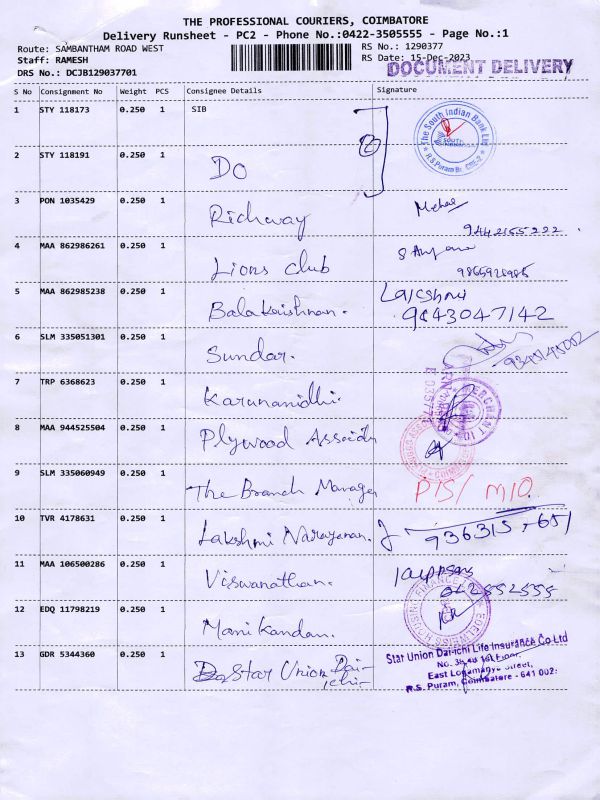 THE PROFESSIONAL COURIERS, COIMBATORE
Delivery Runsheet - PC2 - Phone No.:0422-3505555 - Page No.:1
Route: SAMBANTHAM ROAD WEST
RS No.: 1290377
Staff: RAMESH
RS Date: 15-Dec-2023
DRS No.: DCJB129037701
DOCUMENT DELIVERY
S No Consignment No Weight PCS Consignee Details Signature
1 STY 118173 0.250 1 SIB
The South Indian Bank Ltd
R.S Puram Br.
2 STY 118191 0.250 1 Do
3 PON 1035429 0.250 1 Richway
4 MAA 862986261 0.250 1 Lions Club
5 MAA 862985238 0.250 1 Balakrishnan. Lakshmi
9843047142
6 SLM 335051301 0.250 1 Sundar.
7 TRP 6368623 0.250 1 Karunanidhi.
8 MAA 944525504 0.250 1 Plywood
9 SLM 335060949 0.250 1 The Branch Manager
10 TVR 4178631 0.250 1 Lakshmi Narayanan.
11 MAA 106500286 0.250 1 Viswanathan.
12 EDQ 11798219 0.250 1 Manikandan.
13 GDR 5344360 0.250 1 Star Union Dai-
ichi-
Star Union Dai-ichi Life Insurance Co Ltd
R.S. Puram, Coimbatore - 641 002.